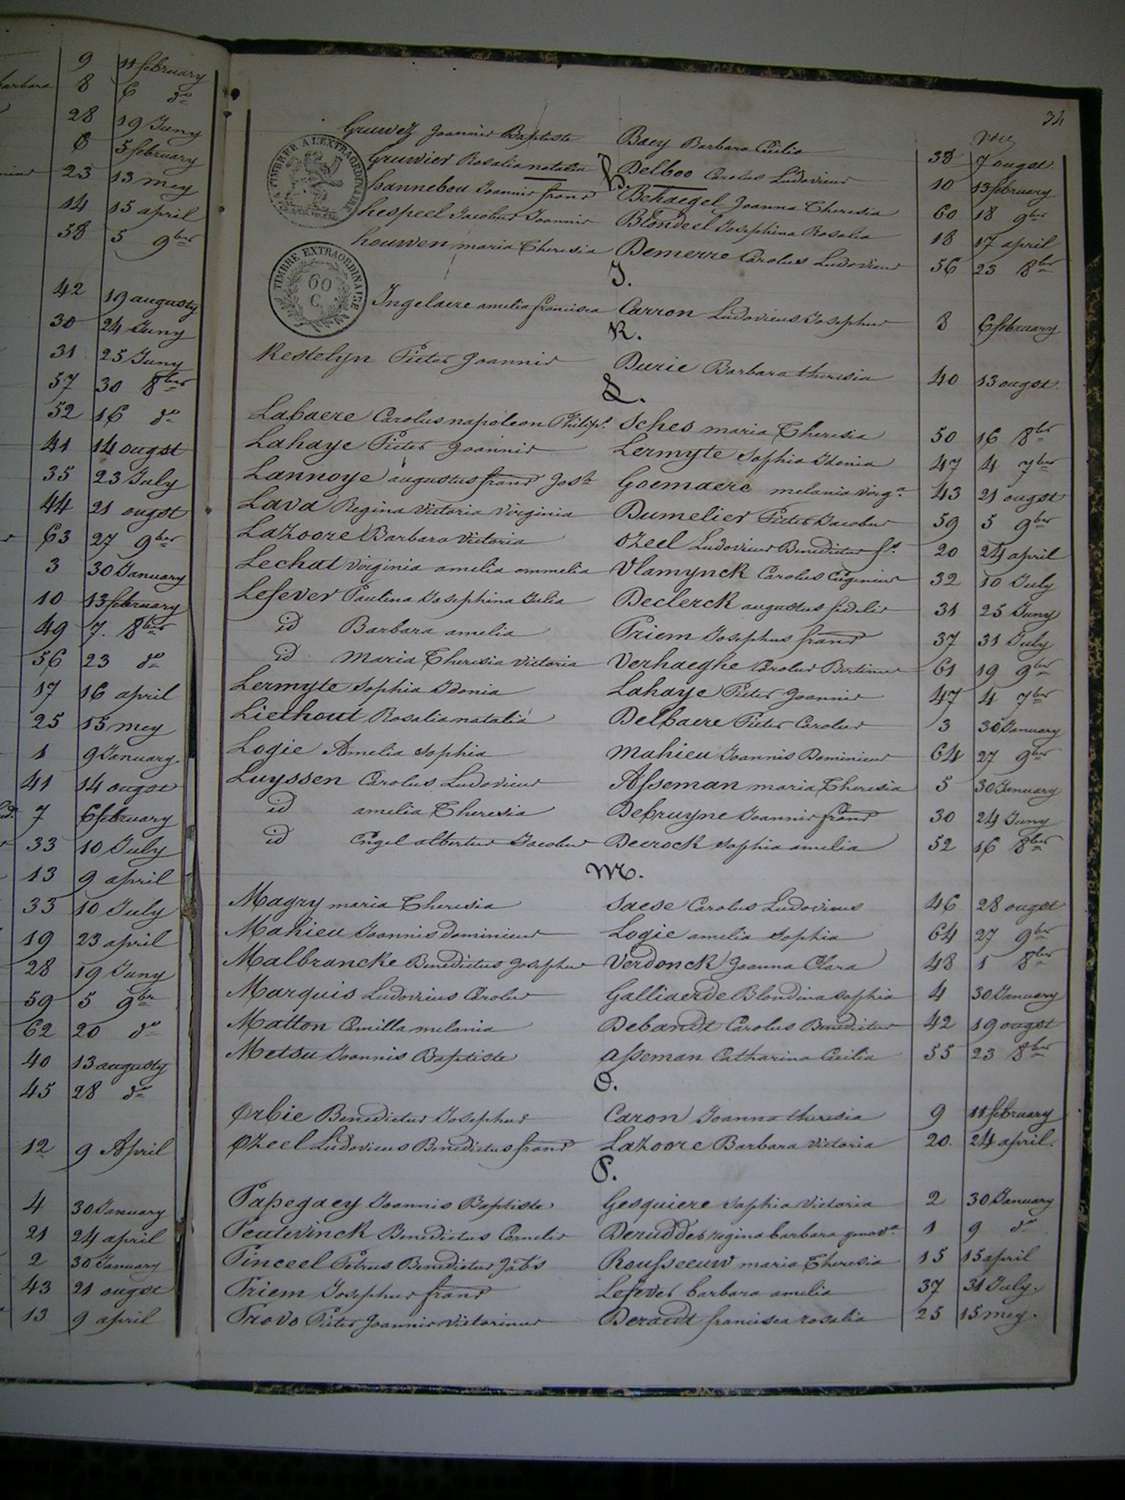 9 11 february
8 6 do
28 19 Juny
8 5 february
23 13 mey
14 15 april
58 5 9ber
42 19 augusty
30 24 Juny
31 25 Juny
57 30 8ber
52 16 do
41 14 ougst
35 23 July
44 21 ougst
63 27 9ber
3 30 January
10 13 february
49 7. 8ber
56 23 do
17 16 april
25 15 mey
1 9 January.
41 14 ougst
7 6 february
33 10 July
13 9 april
33 10 July
19 23 april
28 19 Juny
59 5 9br
62 20 do
40 13 augusty
45 28 do
12 9 April
4 30 January
21 24 april
2 30 January
43 21 ougst
13 9 april
34
Gruwez Joannis Baptiste Baey Barbara Cicilia 38 7 ougst
Gruwier Rosalia natalia Delboo Carolus Ludovicus 10 13 february
H.
hannebou Joannis frans Behaegel Joanna Theresia 60 18 9ber
hespeel Jacobus Joannis Blondeel Josephina Rosalia 18 17 april
houwen maria Theresia Demerre Carolus Ludovicus 56 23 8ber
TIMBRE EXTRAORDINAIRE
60 C.
J.
Ingelaere amelia francisca Carron Ludovicus Josephus 8 6 february
K.
Kestelyn Pieter Joannis Durie Barbara theresia 40 13 ougst.
L.
Labaere Carolus napoleon Philip. Sches maria Theresia 50 16 8ber
Lahaye Pieter Joannis Lermyte Sophia Idonia 47 4 7ber
Lannoye augustus frans Josh Goemaere melania virga 43 21 ougst
Lava Regina Victoria Virginia Dumelier Pieter Jacobus 59 5 9ber
Lazoore Barbara Victoria Ozeel Ludovicus Benedictus fs. 20 24 april
Lechat Virginia amelia ommelia Vlamynck Carolus Eugenius 32 10 July
Lefever Paulina Josephina Julia Declerck augustus fidelis 31 25 Juny
id Barbara amelia Priem Josephus frans 37 31 July
id Maria Theresia Victoria Verhaeghe Carolus Bertinus 61 19 9ber
Lermyte Sophia Idonia Lahaye Pieter Joannis 47 4 7ber
Liethout Rosalia natalia Delbaere Pieter Carolus 3 30 January
Logie Amelia Sophia Mahieu Joannis Dominicus 64 27 9ber
Luyssen Carolus Ludovicus Asseman maria Theresia 5 30 January
id amelia Theresia Debruyne Joannis frans 30 24 Juny
id Engel albertus Jacobus Decrock Sophia amelia 52 16 8ber
M.
Magry maria Theresia Saese Carolus Ludovicus 46 28 ougst
Mahieu Joannis Dominicus Logie amelia Sophia 64 27 9ber
Malbrancke Benedictus Josephus Verdonck Joanna Clara 48 1 8ber
Marquis Ludovicus Carolus Galliaerde Blondina Sophia 4 30 January
Matton Camilla melania Debandt Carolus Benedictus 42 19 ougst
Metsu Joannis Baptiste Asseman Catharina Cicilia 55 23 8ber
O.
Orbie Benedictus Josephus Caron Joanna theresia 9 11 february
Ozeel Ludovicus Benedictus frans Lazoore Barbara Victoria 20. 24 april.
P.
Papegaey Joannis Baptiste Gesquiere Sophia Victoria 2 30 January
Peutevinck Benedictus Cornelis Derudder regina barbara 1 9 do
Pinceel Petrus Benedictus Jacobs Rousseeuw maria Theresia 15 15 april
Priem Josephus frans Lefever barbara amelia 37 31 July.
Provo Pieter Joannis Victorinus Deraedt francisca rosalia 25 15 mey.